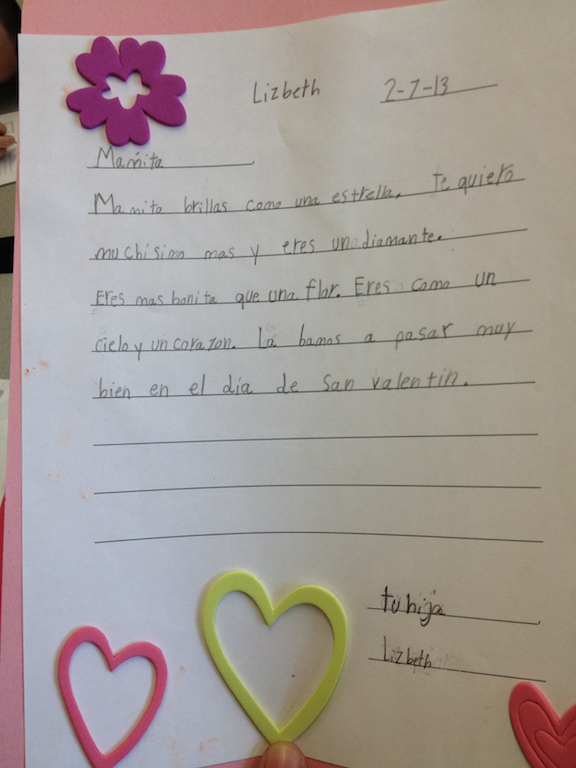 Lizbeth 2-7-13
Mamita
Mamita brillas como una estrella. Te quiero
muchisimo mas y eres un diamante.
Eres mas bonita que una flor. Eres como un
cielo y un corazon. La bamos a pasar muy
bien en el dia de San Valentin.
tu hija
Lizbeth